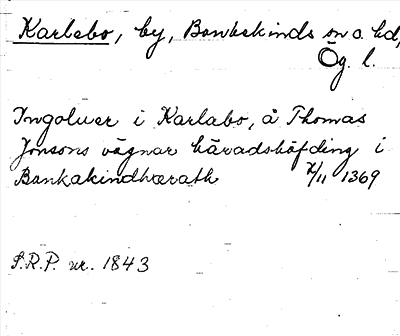 Karlebo, by, Bankekinds sn o. hd,
Ög. l.
Ingoluer i Karlabo, å Thomas
Jonsons vägnar häradshöfding i
Bankakindhærath 2/11 1369
S.R.P. nr. 1843